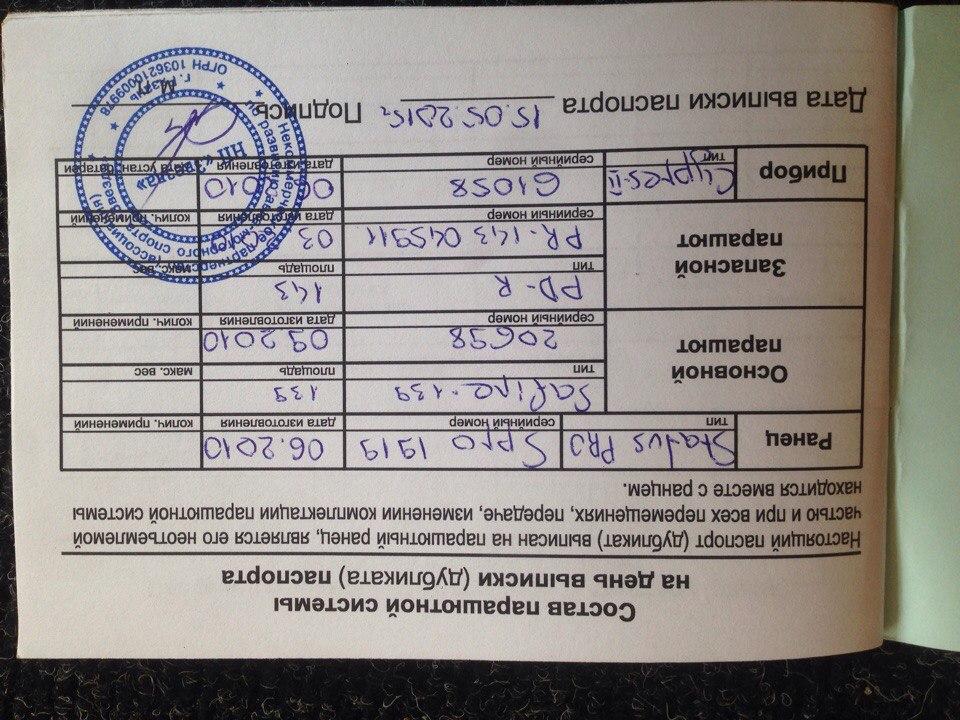 Состав парашютной системы
на день выписки (дубликата) паспорта
Настоящий паспорт (дубликат) выписан на парашютный ранец, является его неотъемлемой
частью и при всех перемещениях, передаче, изменении комплектации парашютной системы
находится вместе с ранцем.
Ранец Status PRO Spro 1919 06.2010
тип серийный номер дата изготовления колич. применений
Основной парашют
Safire-139 139
тип площадь макс. вес
20698 09.2010
серийный номер дата изготовления колич. применений
Запасной парашют
PD-R 143
тип площадь макс. вес
PR-143 045911 03
серийный номер дата изготовления колич. применений
Прибор Cypres-II 61058 2010
тип серийный номер дата изготовления дата устан. батареи
Дата выписки паспорта 15.05.2015г. Подпись
М.П.
Некоммерческое партнерство
ОГРН 1036210009978